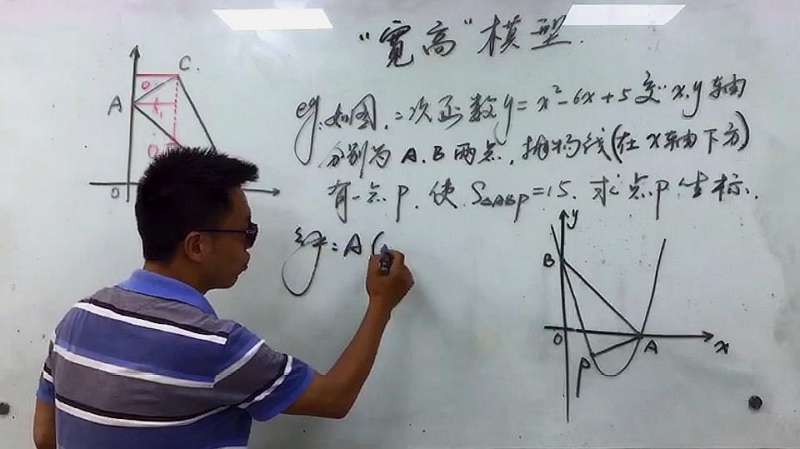 “宽高”模型.
eg. 如图, 二次函数y=x²-6x+5交x,y轴
分别为A.B两点, 抛物线(在x轴下方)
有一点P. 使S△ABP=15. 求点P坐标.
解:A(
C.
A
O
y
B
O
A
x
P